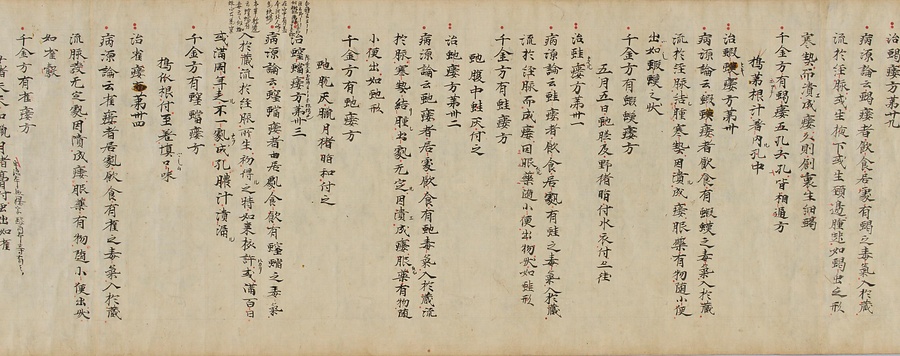 治蝎瘻方第廿九
病源論云蝎瘻者飲食居處有蝎之毒氣入於藏
流於注脈或生掖下或生頭邊腫起如蝎虫之形
寒熱而潰成瘻久則創裏生細蝎
千金方有蝎瘻五孔六孔皆相通方
搗茅根汁著內孔中
治蝦蟆瘻方第卅
病源論云蝦蟆瘻者飲食有蝦蟆之毒氣入於藏
流於注脈結腫寒熱因潰成瘻服藥有物隨小便
出如蝦蟆之狀
千金方有蝦蟆瘻方
五月五日虵頭及野猪脂付水衣付
治蛙瘻方第卅一
病源論云蛙瘻者飲食居處有蛙之毒氣入於藏
流於注脈而成瘻因服藥隨小便出物狀如蛙形
千金方有蛙瘻方
虵腹中蛙灰付之
治虵瘻方第卅二
病源論云虵瘻者居處飲食有虵毒氣入於藏流
於脈寒熱結腫出處无定因潰成瘻服藥有物隨
小便出如虵形
千金方有虵瘻方
虵脫灰臘月猪脂和付之
治螲蟷瘻方第卅三
病源論云螲蟷瘻者由居處食飲有螲蟷之毒氣
入於藏流於注脈所生初得之時如棗核許或滿百日
或滿周年走不一處成孔膿汁潰漏
千金方有螲蟷瘻方
搗 根付至差慎口味
治雀瘻方第卅四
病源論云雀瘻者居處飲食有雀之毒氣入於藏
流脈發无定處因潰成瘻服藥有物隨小便出狀
如雀鷇
千金方有雀瘻方